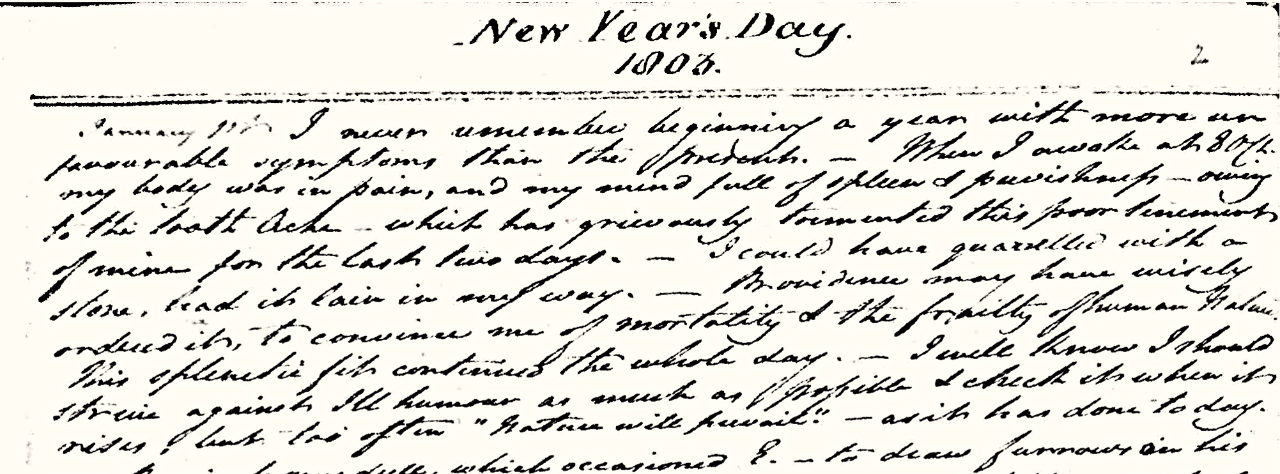 New Year's Day.
1803.
2
January 1st I never remember beginning a year with more un
favourable symptoms than the present. — When I awoke at 8 O'Ck.
my body was in pain, and my mind full of spleen & peevishness — owing
to the tooth Ache — which has grievously tormented this poor tenement
of mine for the last two days. — I could have quarrelled with a
stone, had it lain in my way. — Providence may have wisely
ordered it, to convince me of mortality & the frailty of human Nature.
This splenetic fit continued the whole day. — I well know I should
strive against Ill humour as much as possible & check it when it
rises, but too often "Nature will prevail." — as it has done to day.
which occasioned E. — to draw furrows in his